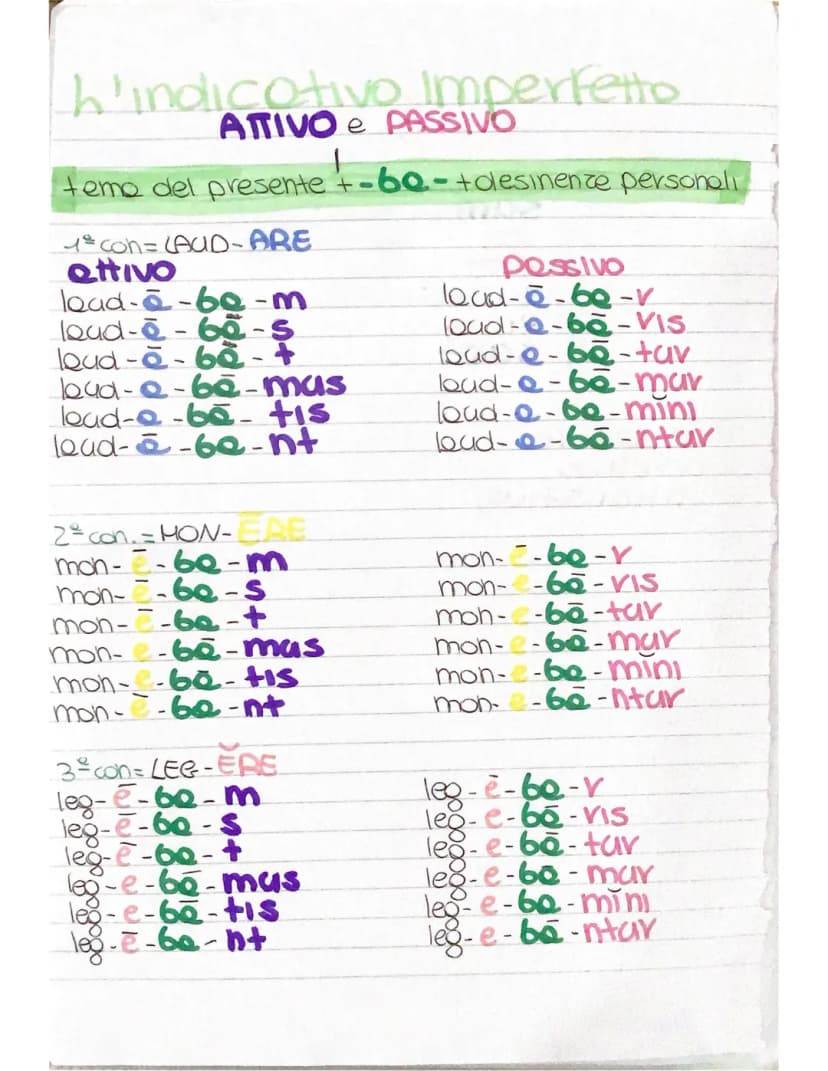 L'indicativo Imperfetto
ATTIVO e PASSIVO
tema del presente + -ba- + desinenze personali
1ª con = LAUD-ARE
attivo
laud-ā-ba-m
laud-ā-bā-s
laud-ā-bā-t
laud-a-bā-mus
laud-a-bā-tis
laud-ā-ba-nt
passivo
laud-ā-ba-r
laud-a-bā-ris
laud-a-bā-tur
laud-a-bā-mur
laud-a-ba-mĭni
laud-a-bā-ntur
2ª con. = MON-ĒRE
mon-ē-ba-m
mon-ē-ba-s
mon-ē-ba-t
mon-e-bā-mus
mon-e-bā-tis
mon-ē-ba-nt
mon-ē-ba-r
mon-e-bā-ris
mon-e-bā-tur
mon-e-bā-mur
mon-e-ba-mĭni
mon-e-bā-ntur
3ª con = LEG-ĔRE
leg-ē-ba-m
leg-ē-ba-s
leg-ē-ba-t
leg-e-bā-mus
leg-e-bā-tis
leg-ē-ba-nt
leg-ē-ba-r
leg-e-bā-ris
leg-e-bā-tur
leg-e-ba-mur
leg-e-ba-mĭni
leg-e-bā-ntur